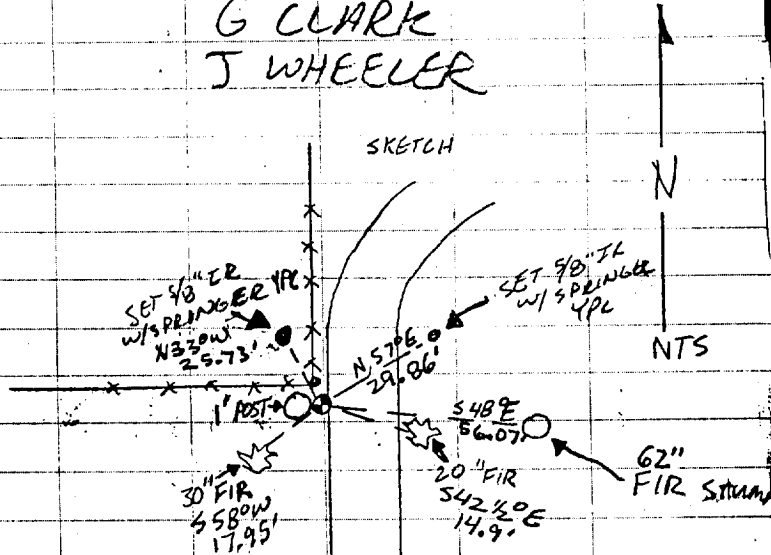 G CLARK
J WHEELER
SKETCH
N
NTS
SET 5/8" IR
W/SPRINGER YPC
N33°W
25.73'
SET 5/8" IR
W/ SPRINGER
YPC
N 57°E
29.86'
1' POST
S 48°E
56.07'
62"
FIR STUMP
20" FIR
S42 1/2°E
14.9'
30" FIR
S58°W
17.95'